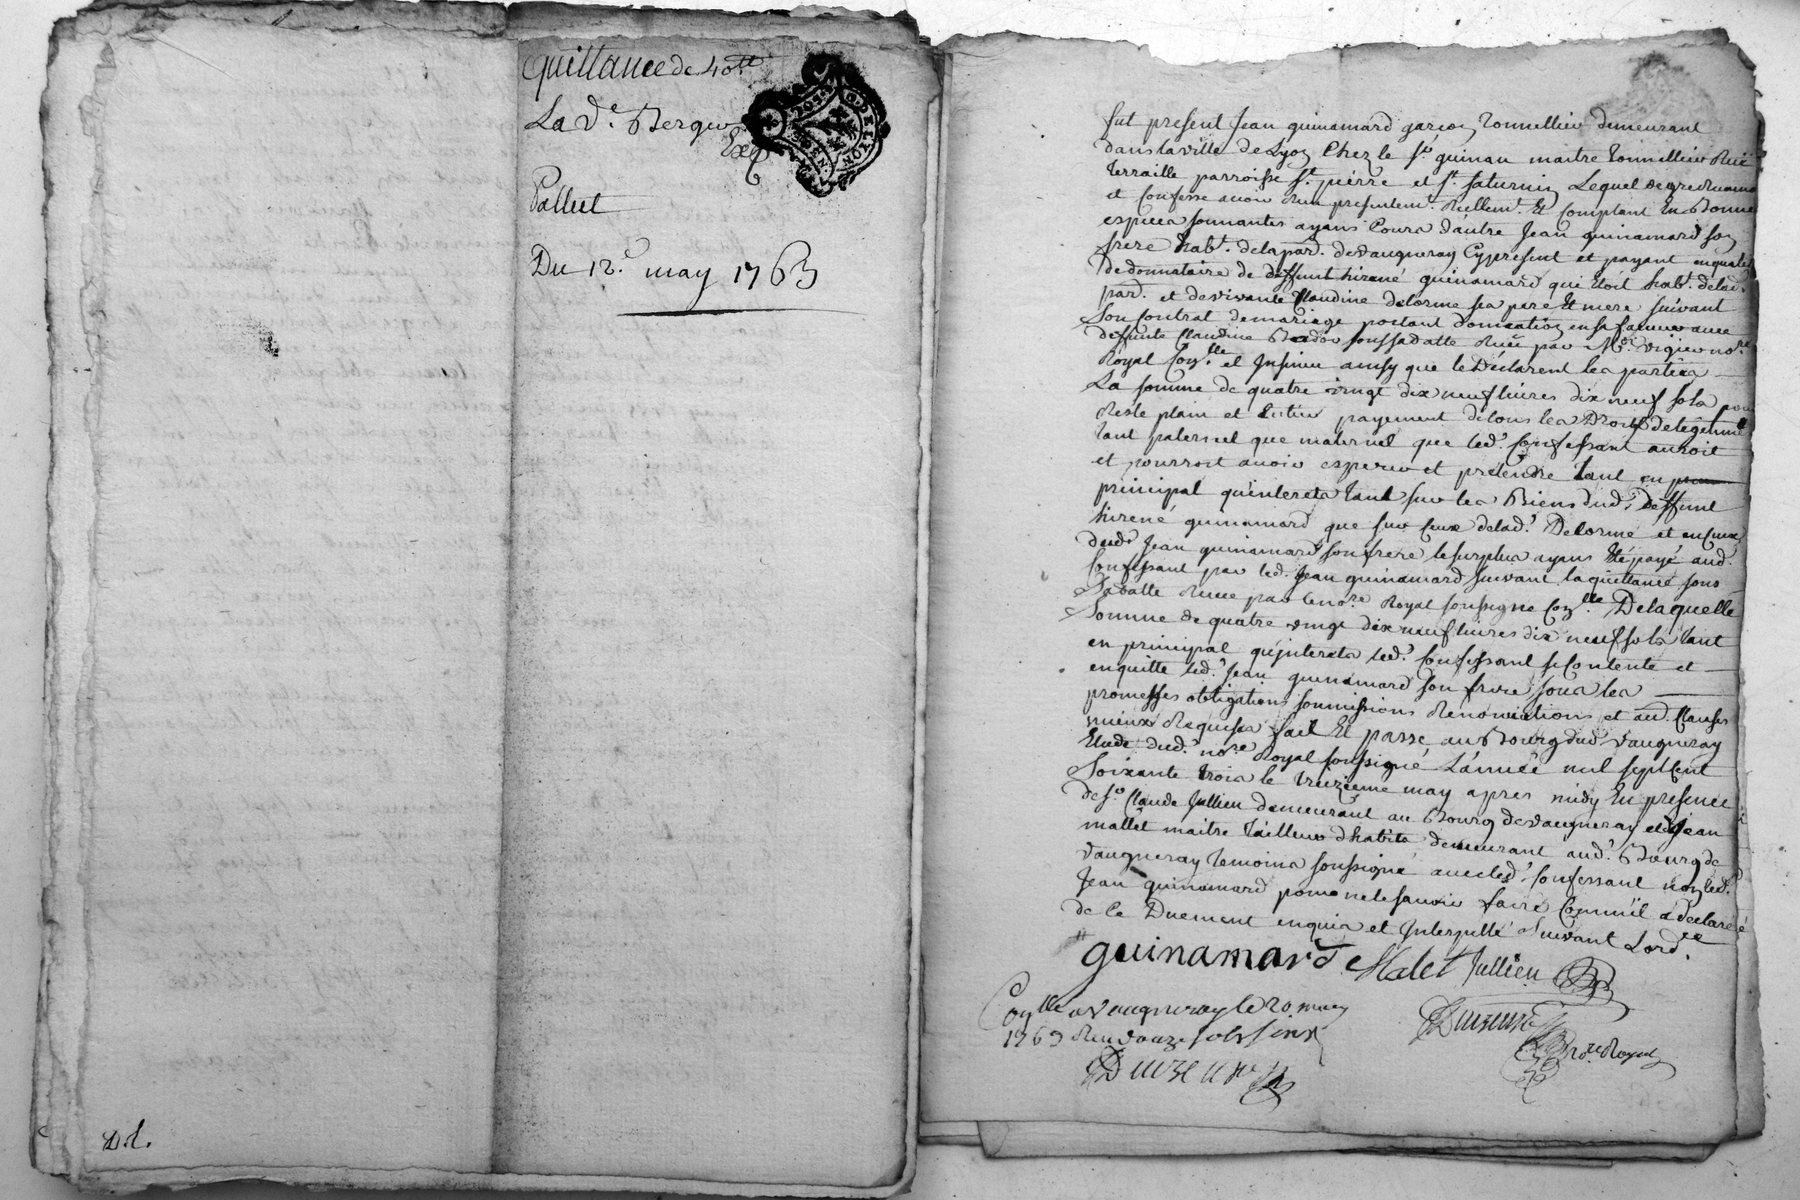 Quittance de 40tt
La Ve. Berger
Exp.
Pallut
Du 12e. may 1763
DE LYON
GEN
Dd.
fut present Jean guinamard garcon tonnellier demeurant
dans la ville de Lyon chez le sr. guinan maitre tonnellier Rüe
terraille parroisse st. pierre et st. saturnin Lequel de gré
et confesse avoir Receu presentemt. Reellemt. Et comptant En Bonne
especes sonnantes ayans Cours d'autre Jean guinamard son
frere habt. de la par. de vaugneray Cy present et payant en qualité
De donnataire de deffunt hirené guinamard qui étoit habt. de lad.
par. et de vivante Claudine delorme ses pere Et mere suivant
Son Contrat de mariage portant donnation en sa faveur avec
deffunte Claudine sous sa datte Receu par Me. vigier nore.
Royal Con.lle et Insinué ainsy que le Déclarent les parties
La somme de quatre vingt dix neuf livres dix neuf sols pour
Reste plain et Entier payement de tous les Droits de legitime
tant paternel que maternel que led. Confessant auroit
et pourroit avoir esperer et pretendre tant en
principal qu'interets tant sur les Biens dud. deffunt
hirené guinamard que sur ceux de lad. Delorme et en ceux
dud. Jean guinamard son frere le surplus ayans Eté payé aud.
Confessant par led. Jean guinamard suivant la quittance sous
Sa datte Receue par le nore. Royal soussigné Con.lle De laquelle
Somme de quatre vingt dix neuf livres dix neuf sols tant
en principal qu'jnterets led. Confessant se Contente et
en quitte led. Jean guinamard son frere sous les
promesses obligations soumissions Renonciations et aud. Clauses
mieux Requises fait Et passé au Bourg dud. vaugneray
Etude dud. nore. Royal soussigné L'année mil sept Cent
Soixante trois le treizieme may apres midy En presence
de sr. Claude Jullien demeurant au Bourg de vaugneray et de Jean
mallet maitre tailleur d'habits demeurant aud. Bourg de
vaugneray temoins soussigné avec led. Confessant non led.
Jean guinamard pour ne le savoir faire Comme il a declaré
de Ce Duement enquis et Interpellé Suivant L'ord.ce
guinamard Malet Jullien
Con.lle a vaugneray le 20 may
1763 Receu douze sols six
nore. Royal